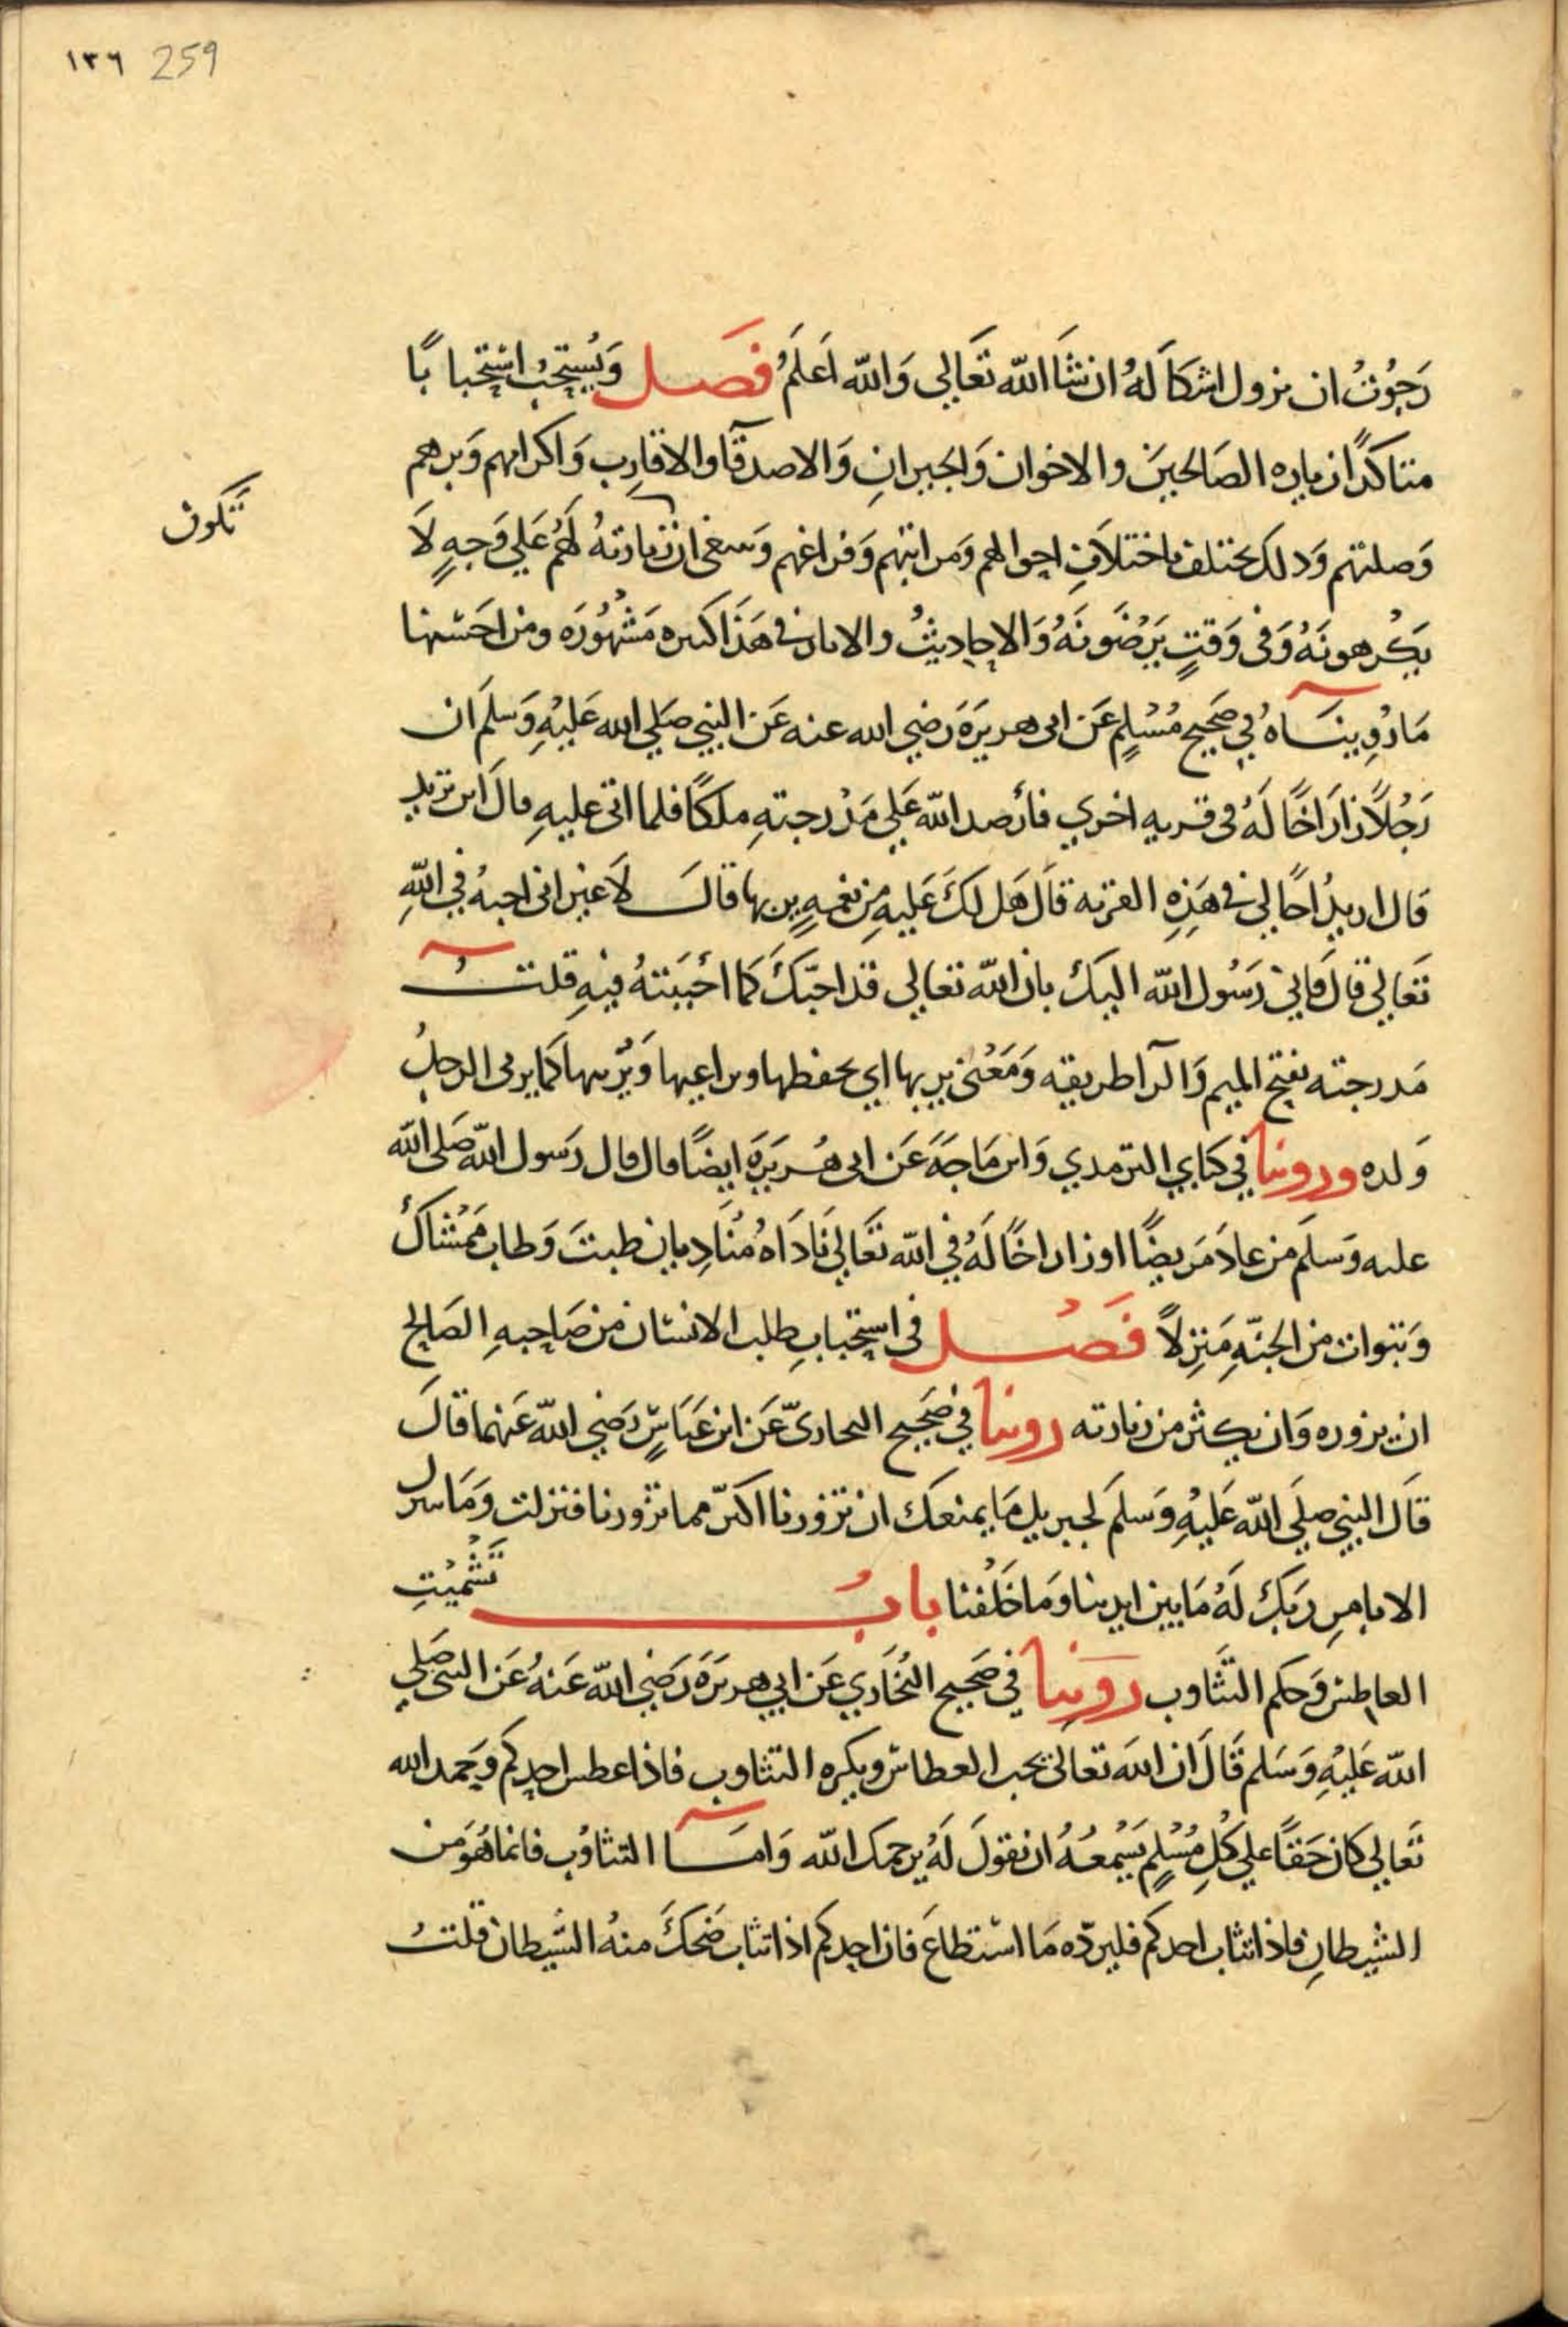 ١٣٦ 259
رَجَوْتُ ان يزول اشكاله ان شَا الله تَعَالي وَالله اَعلَمُ فَصل وَيُستحَبُ استحبابًا
متاكدًا زياره الصَالحينَ والاخوان وَالجيرانِ وَالاصدقآ والاقارِب وَاكرامهم وَبرهم
وَصلتهم وَذلك يختلف باختلافِ احوالهم وَمراتبهم وَفراغهم وَينبغي ان زيارتهُ لَهُم عَلي وَجهٍ لَا
تكون
يَكْرهونَهُ وَفي وَقتٍ يَرْضَونَهُ وَالاحاديثُ والاثار في هَذَا كثيره مَشْهُورَه ومن احَسنها
مَا رُوِينَاهُ في صَحِيح مُسْلِم عَن ابى هريرَةَ رَضِي الله عنه عَن النبي صَلي الله عَليْهِ وَسلمَ ان
رَجُلاً زارَ اخًا لَهُ فى قريه اخري فأرصد الله عَلي مَدْرجتهِ ملكًا فلما اتى عليهِ قال اَين تريد
قال اريدُ اخًا لي في هَذِهِ القرية قال هَل لكَ عَليهِ مِن نعمهٍ يربها قالَ لاَ غير انى احبهُ في اللهِ
تَعَالي قالَ فاني رَسُول الله اليكَ بان الله تعالي قد احبّكَ كمَا احْبَبتهُ فيهِ قلتُ
مَدرجته بفتح الميم وَالرآ طريقه وَمَعْنى يربها اي يحفظها ويراعيها وَيُربيها كَما يربى الرجلُ
وَلده وروينا في كتابي الترمذي وَابن مَاجَهَ عَن ابى هُريرَةَ ايضًا قال قال رَسول الله صَلى الله
عليه وَسَلمَ من عادَ مَريضًا او زار اخًا لَهُ في الله تَعَالي نَادَاهُ مُنَادٍ بان طبتَ وَطاب مَمْشاكَ
وَتبوات من الجنّهِ مَنزلاً فَصْل فى استحبابِ طلب الانسان من صَاحِبهِ الصَالح
ان يزوره وَان يكثر من زيارته روينا في صَحِيح البخارىّ عَن ابن عَبَاسٍ رَضِي الله عَنهما قالَ
قالَ النبي صَلي الله عَليْهِ وَسَلمَ لجبريل مَا يمنعك ان تزورنا اكثر مما تزورنا فنزلت وَمَا نتنزل
الا بامرِ رَبكَ لَهُ مَا بين ايدينا وَمَا خَلْفنا بابُ تَشْمِيْتِ
العاطِس وَحكم التَّثَاوب رَوَينا في صَحِيح البُخَاري عَن ابي هريرَةَ رَضِي الله عَنهُ عَن النبى صَلي
الله عَليْهِ وَسَلم قَالَ ان اللهَ تعَالي يحب العطاس ويكره التثاوب فاذا عطس احدكم وَحمد الله
تَعالي كان حَقًا علي كُلِ مُسْلمٍ يَسْمعُهُ ان يقولَ لَهُ يرحمك الله وَامَّا التثاوُب فانما هُوَ من
الشيطانِ فاذا تثاب احدكم فليردّه مَا اسْتطاعَ فان احدكم اذا تثاب ضَحكَ منهُ الشيطان قلتُ